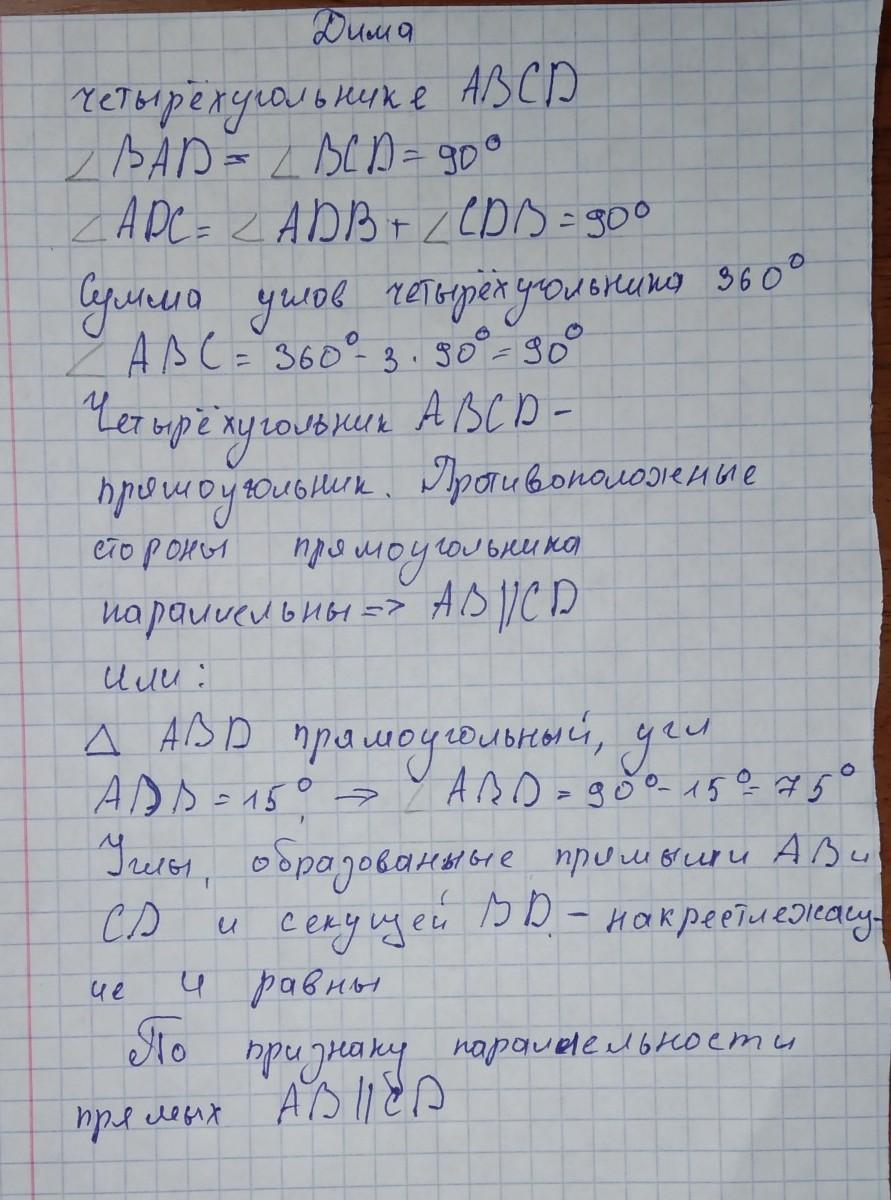 Дима
четырёхугольнике ABCD
∠ BAD = ∠ BCD = 90°
∠ ADC = ∠ ADB + ∠ CDB = 90°
Сумма углов четырёхугольника 360°
∠ ABC = 360° - 3 · 90° = 90°
Четырёхугольник ABCD -
прямоугольник. Противоположные
стороны прямоугольника
параллельны => AB || CD
или:
Δ ABD прямоугольный, угл
ADB = 15° => ∠ ABD = 90° - 15° = 75°
Углы, образованные прямыми AB и
CD и секущей BD - накрестлежащу-
ие и равны
По признаку параллельности
прямых AB || CD